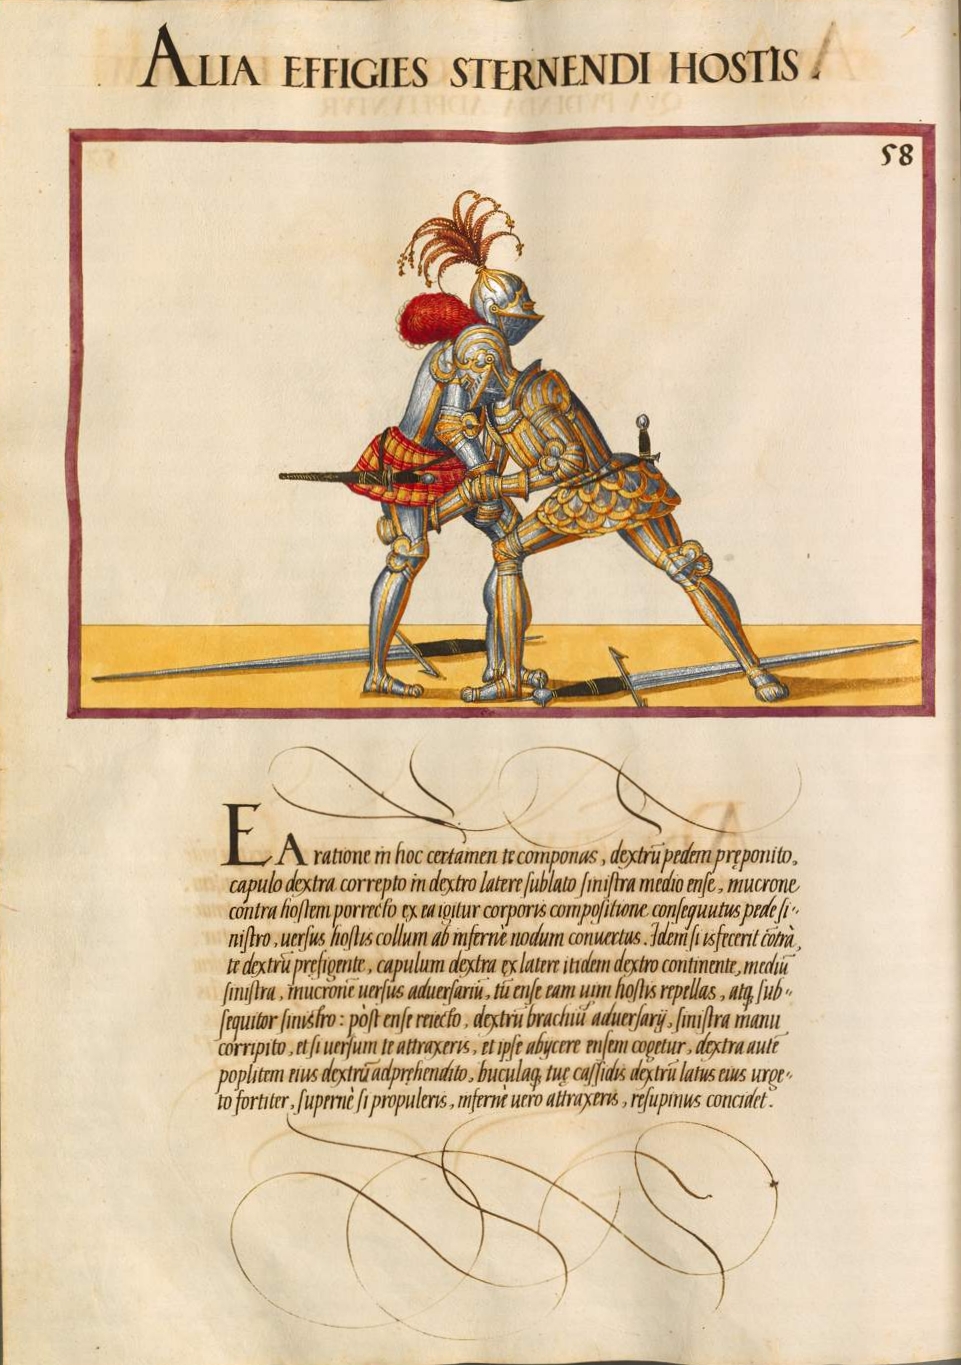 ALIA EFFIGIES STERNENDI HOSTIS.
58
EA ratione in hoc certamen te componas, dextrū pedem pręponito,
capulo dextra correpto in dextro latere sublato sinistra medio ense, mucrone
contra hostem porrecto ex ea igitur corporis compositione consequutus pede si-
nistro, uersus hostis collum ab infernè nodum conuertas. Idem si is fecerit cōtrà,
te dextrū pręfigente, capulum dextra ex latere itidem dextro continente, mediū
sinistra, mucrone uersus aduersariū, tū ense eam uim hostis repellas, atq, sub-
sequitor sinistro: pòst ense reiecto, dextrū brachiū aduersarij, sinistra manu
corripito, et si uersum te attraxeris, et ipse abycere ensem cogetur, dextra autē
poplitem eius dextrū adpręhendito, buculaq, tuę cassidis dextrū latus eius urge-
to fortiter, supernè si propuleris, infernè uero attraxeris, resupinus concidet.